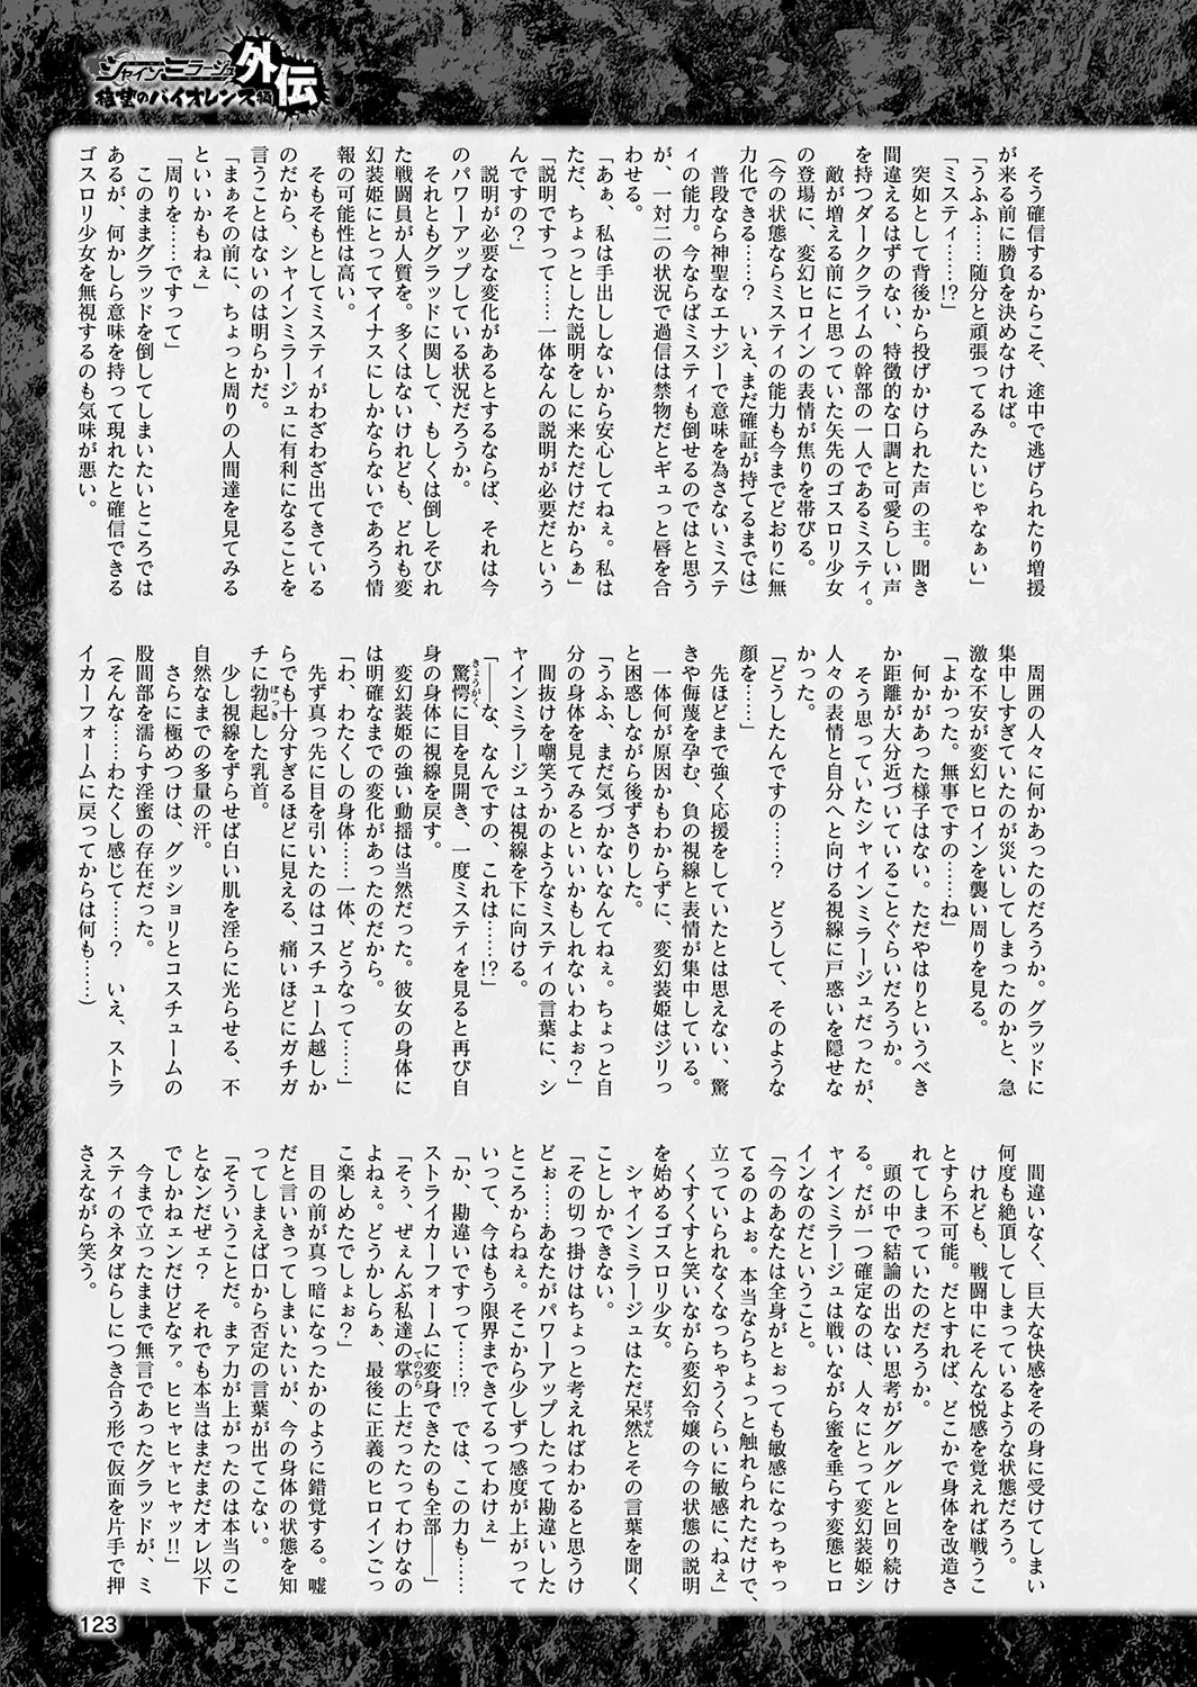 シャインミラージュ外伝
絶望のバイオレンス編
　そう確信するからこそ、途中で逃げられたり増援
が来る前に勝負を決めなければ。
「うふふ……随分と頑張ってるみたいじゃなぁい」
「ミスティ……!?」
　突如として背後から投げかけられた声の主。聞き
間違えるはずのない、特徴的な口調と可愛らしい声
を持つダーククライムの幹部の一人であるミスティ。
　敵が増える前にと思っていた矢先のゴスロリ少女
の登場に、変幻ヒロインの表情が焦りを帯びる。
（今の状態ならミスティの能力も今までどおりに無
力化できる……？　いえ、まだ確証が持てるまでは）
　普段なら神聖なエナジーで意味を為さないミステ
ィの能力。今ならばミスティも倒せるのではと思う
が、一対二の状況で過信は禁物だとギュっと唇を合
わせる。
「あぁ、私は手出ししないから安心してねぇ。私は
ただ、ちょっとした説明をしに来ただけだからぁ」
「説明ですって……一体なんの説明が必要だという
んですの？」
　説明が必要な変化があるとするならば、それは今
のパワーアップしている状況だろうか。
　それともグラッドに関して、もしくは倒しそびれ
た戦闘員が人質を。多くはないけれども、どれも変
幻装姫にとってマイナスにしかならないであろう情
報の可能性は高い。
　そもそもとしてミスティがわざわざ出てきている
のだから、シャインミラージュに有利になることを
言うことはないのは明らかだ。
「まぁその前に、ちょっと周りの人間達を見てみる
といいかもねぇ」
「周りを……ですって」
　このままグラッドを倒してしまいたいところでは
あるが、何かしら意味を持って現れたと確信できる
ゴスロリ少女を無視するのも気味が悪い。
　周囲の人々に何かあったのだろうか。グラッドに
集中しすぎていたのが災いしてしまったのかと、急
激な不安が変幻ヒロインを襲い周りを見る。
「よかった。無事ですの……ね」
　何かがあった様子はない。ただやはりというべき
か距離が大分近づいていることぐらいだろうか。
　そう思っていたシャインミラージュだったが、
人々の表情と自分へと向ける視線に戸惑いを隠せな
かった。
「どうしたんですの……？　どうして、そのような
顔を……」
　先ほどまで強く応援をしていたとは思えない、驚
きや侮蔑を孕む、負の視線と表情が集中している。
　一体何が原因かもわからずに、変幻装姫はジリっ
と困惑しながら後ずさりした。
「うふふ、まだ気づかないなんてねぇ。ちょっと自
分の身体を見てみるといいかもしれないわよぉ？」
　間抜けを嘲笑うかのようなミスティの言葉に、シ
ャインミラージュは視線を下に向ける。
「――な、なんですの、これは……!?」
　驚愕に目を見開き、一度ミスティを見ると再び自
身の身体に視線を戻す。
　変幻装姫の強い動揺は当然だった。彼女の身体に
は明確なまでの変化があったのだから。
「わ、わたくしの身体……一体、どうなって……」
　先ず真っ先に目を引いたのはコスチューム越しか
らでも十分すぎるほどに見える、痛いほどにガチガ
チに勃起した乳首。
　少し視線をずらせば白い肌を淫らに光らせる、不
自然なまでの多量の汗。
　さらに極めつけは、グッショリとコスチュームの
股間部を濡らす淫蜜の存在だった。
（そんな……わたくし感じて……？　いえ、ストラ
イカーフォームに戻ってからは何も……）
　間違いなく、巨大な快感をその身に受けてしまい
何度も絶頂してしまっているような状態だろう。
　けれども、戦闘中にそんな悦感を覚えれば戦うこ
とすら不可能。だとすれば、どこかで身体を改造さ
れてしまっていたのだろうか。
　頭の中で結論の出ない思考がグルグルと回り続け
る。だが一つ確定なのは、人々にとって変幻装姫シ
ャインミラージュは戦いながら蜜を垂らす変態ヒロ
インなのだということ。
「今のあなたは全身がとぉっても敏感になっちゃっ
てるのよぉ。本当ならちょっと触れられただけで、
立っていられなくなっちゃうくらいに敏感に、ねぇ」
　くすくすと笑いながら変幻令嬢の今の状態の説明
を始めるゴスロリ少女。
　シャインミラージュはただ呆然とその言葉を聞く
ことしかできない。
「その切っ掛けはちょっと考えればわかると思うけ
どぉ……あなたがパワーアップしたって勘違いした
ところからねぇ。そこから少しずつ感度が上がって
いって、今はもう限界まできてるってわけぇ」
「か、勘違いですって……!?　では、この力も……
ストライカーフォームに変身できたのも全部――」
「そぅ、ぜぇんぶ私達の掌の上だったってわけなの
よねぇ。どうかしらぁ、最後に正義のヒロインごっ
こ楽しめたでしょぉ？」
　目の前が真っ暗になったかのように錯覚する。嘘
だと言いきってしまいたいが、今の身体の状態を知
ってしまえば口から否定の言葉が出てこない。
「そういうことだ。まァ力が上がったのは本当のこ
となンだぜェ？　それでも本当はまだまだオレ以下
でしかねェンだけどなァ。ヒヒャヒャヒャッ!!」
　今まで立ったままで無言であったグラッドが、ミ
スティのネタばらしにつき合う形で仮面を片手で押
さえながら笑う。
きょうがく
ぼっき
ぼうぜん
てのひら
123